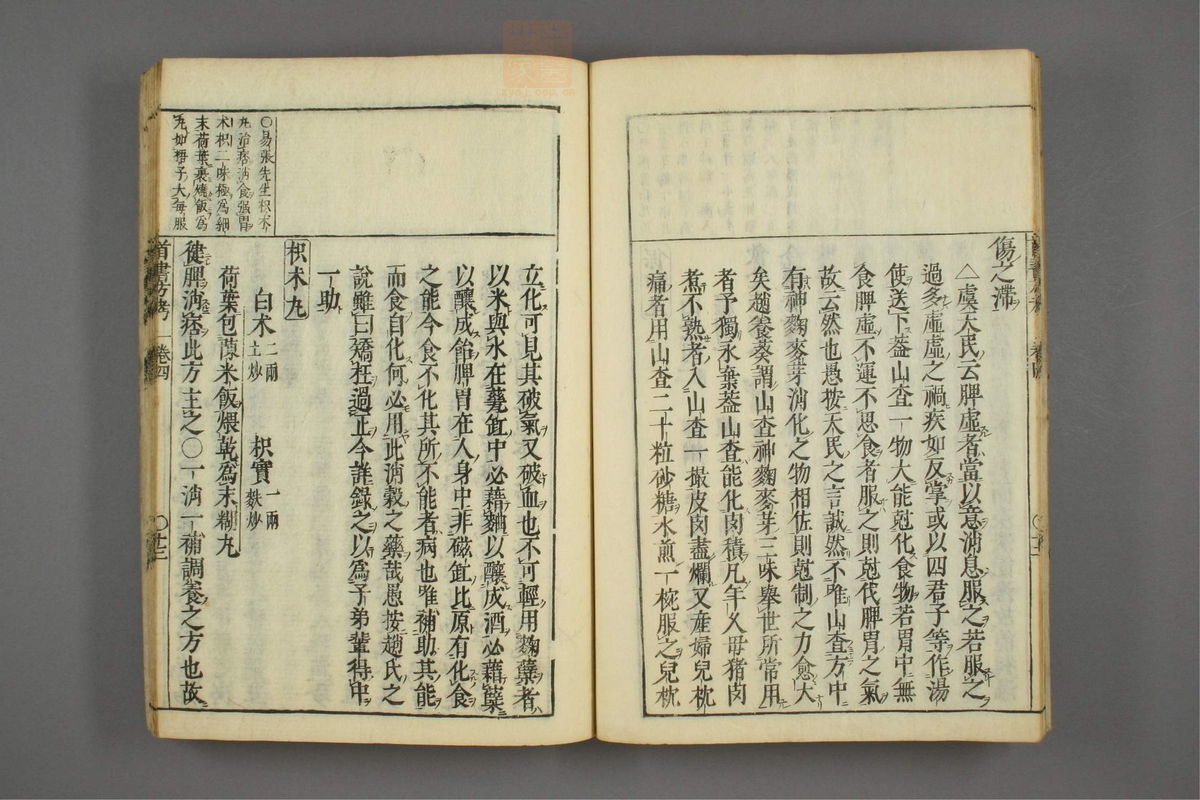 傷之滯
△虞天民云脾虛者當以意消息服之若服之
過多虛虛之禍疾如反掌或以四君子等作湯
使送下蓋山査一物大能尅化食物若胃中無
食脾虛不運不思食者服之則尅伐脾胃之氣
故云然也愚按天民之言誠然不唯山査方中
有神麴麥芽消化之物相佐則尅制之力愈大
矣趙養葵謂山査神麴麥芽三味舉世所常用
者予獨永棄蓋山査能化肉積凡年乆毋猪肉
煮不熟者入山査一撮皮肉盡爛又産婦兒枕
痛者用山査二十粒砂糖水煎一椀服之兒枕
立化可見其破氣又破血也不可輕用麴蘗者
以米與水在甕缸中必藉麯以釀成酒必藉蘗
以釀成飴脾胃在人身中非磁缸比原有化食
之能今食不化其所不能者病也唯補助其能
而食自化何必用此消穀之藥哉愚按趙氏之
說雖曰矯枉過正今謹錄之以爲子弟輩得中
一助
枳朮丸
白朮 二兩 土炒 枳實 一兩 麩炒
荷葉包陳米飯煨乾爲末糊丸
健脾消痞此方主之○一消一補調養之方也故
○易張先生枳朮
丸治痞消食强胃
朮枳二味極爲細
末荷葉裹燒飯爲
丸如梧子大每服
首書方考 卷四 ○廿三